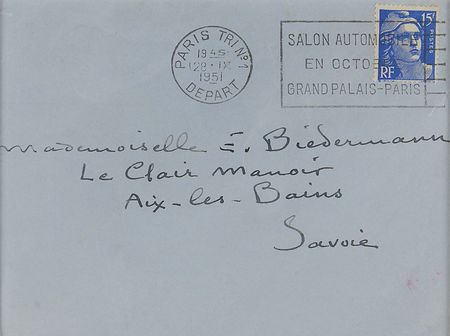 PARIS TRI Nº1
1945
28 · IX
1951
DEPART
SALON AUTOMOBILE
EN OCTOBRE
GRAND PALAIS-PARIS
15F
POSTES
RF
Mademoiselle E. Biedermann
Le Clair Manoir
Aix-les-Bains
Savoie